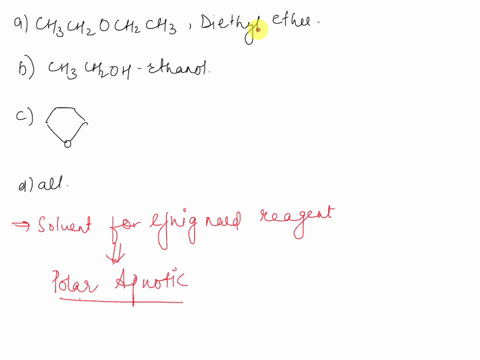 a) CH3CH2OCH2CH3, Diethyl ether.
b) CH3CH2OH - Ethanol.
c)
O
d) all.
⇒ Solvent for Grignard reagent
⇓
Polar Aprotic